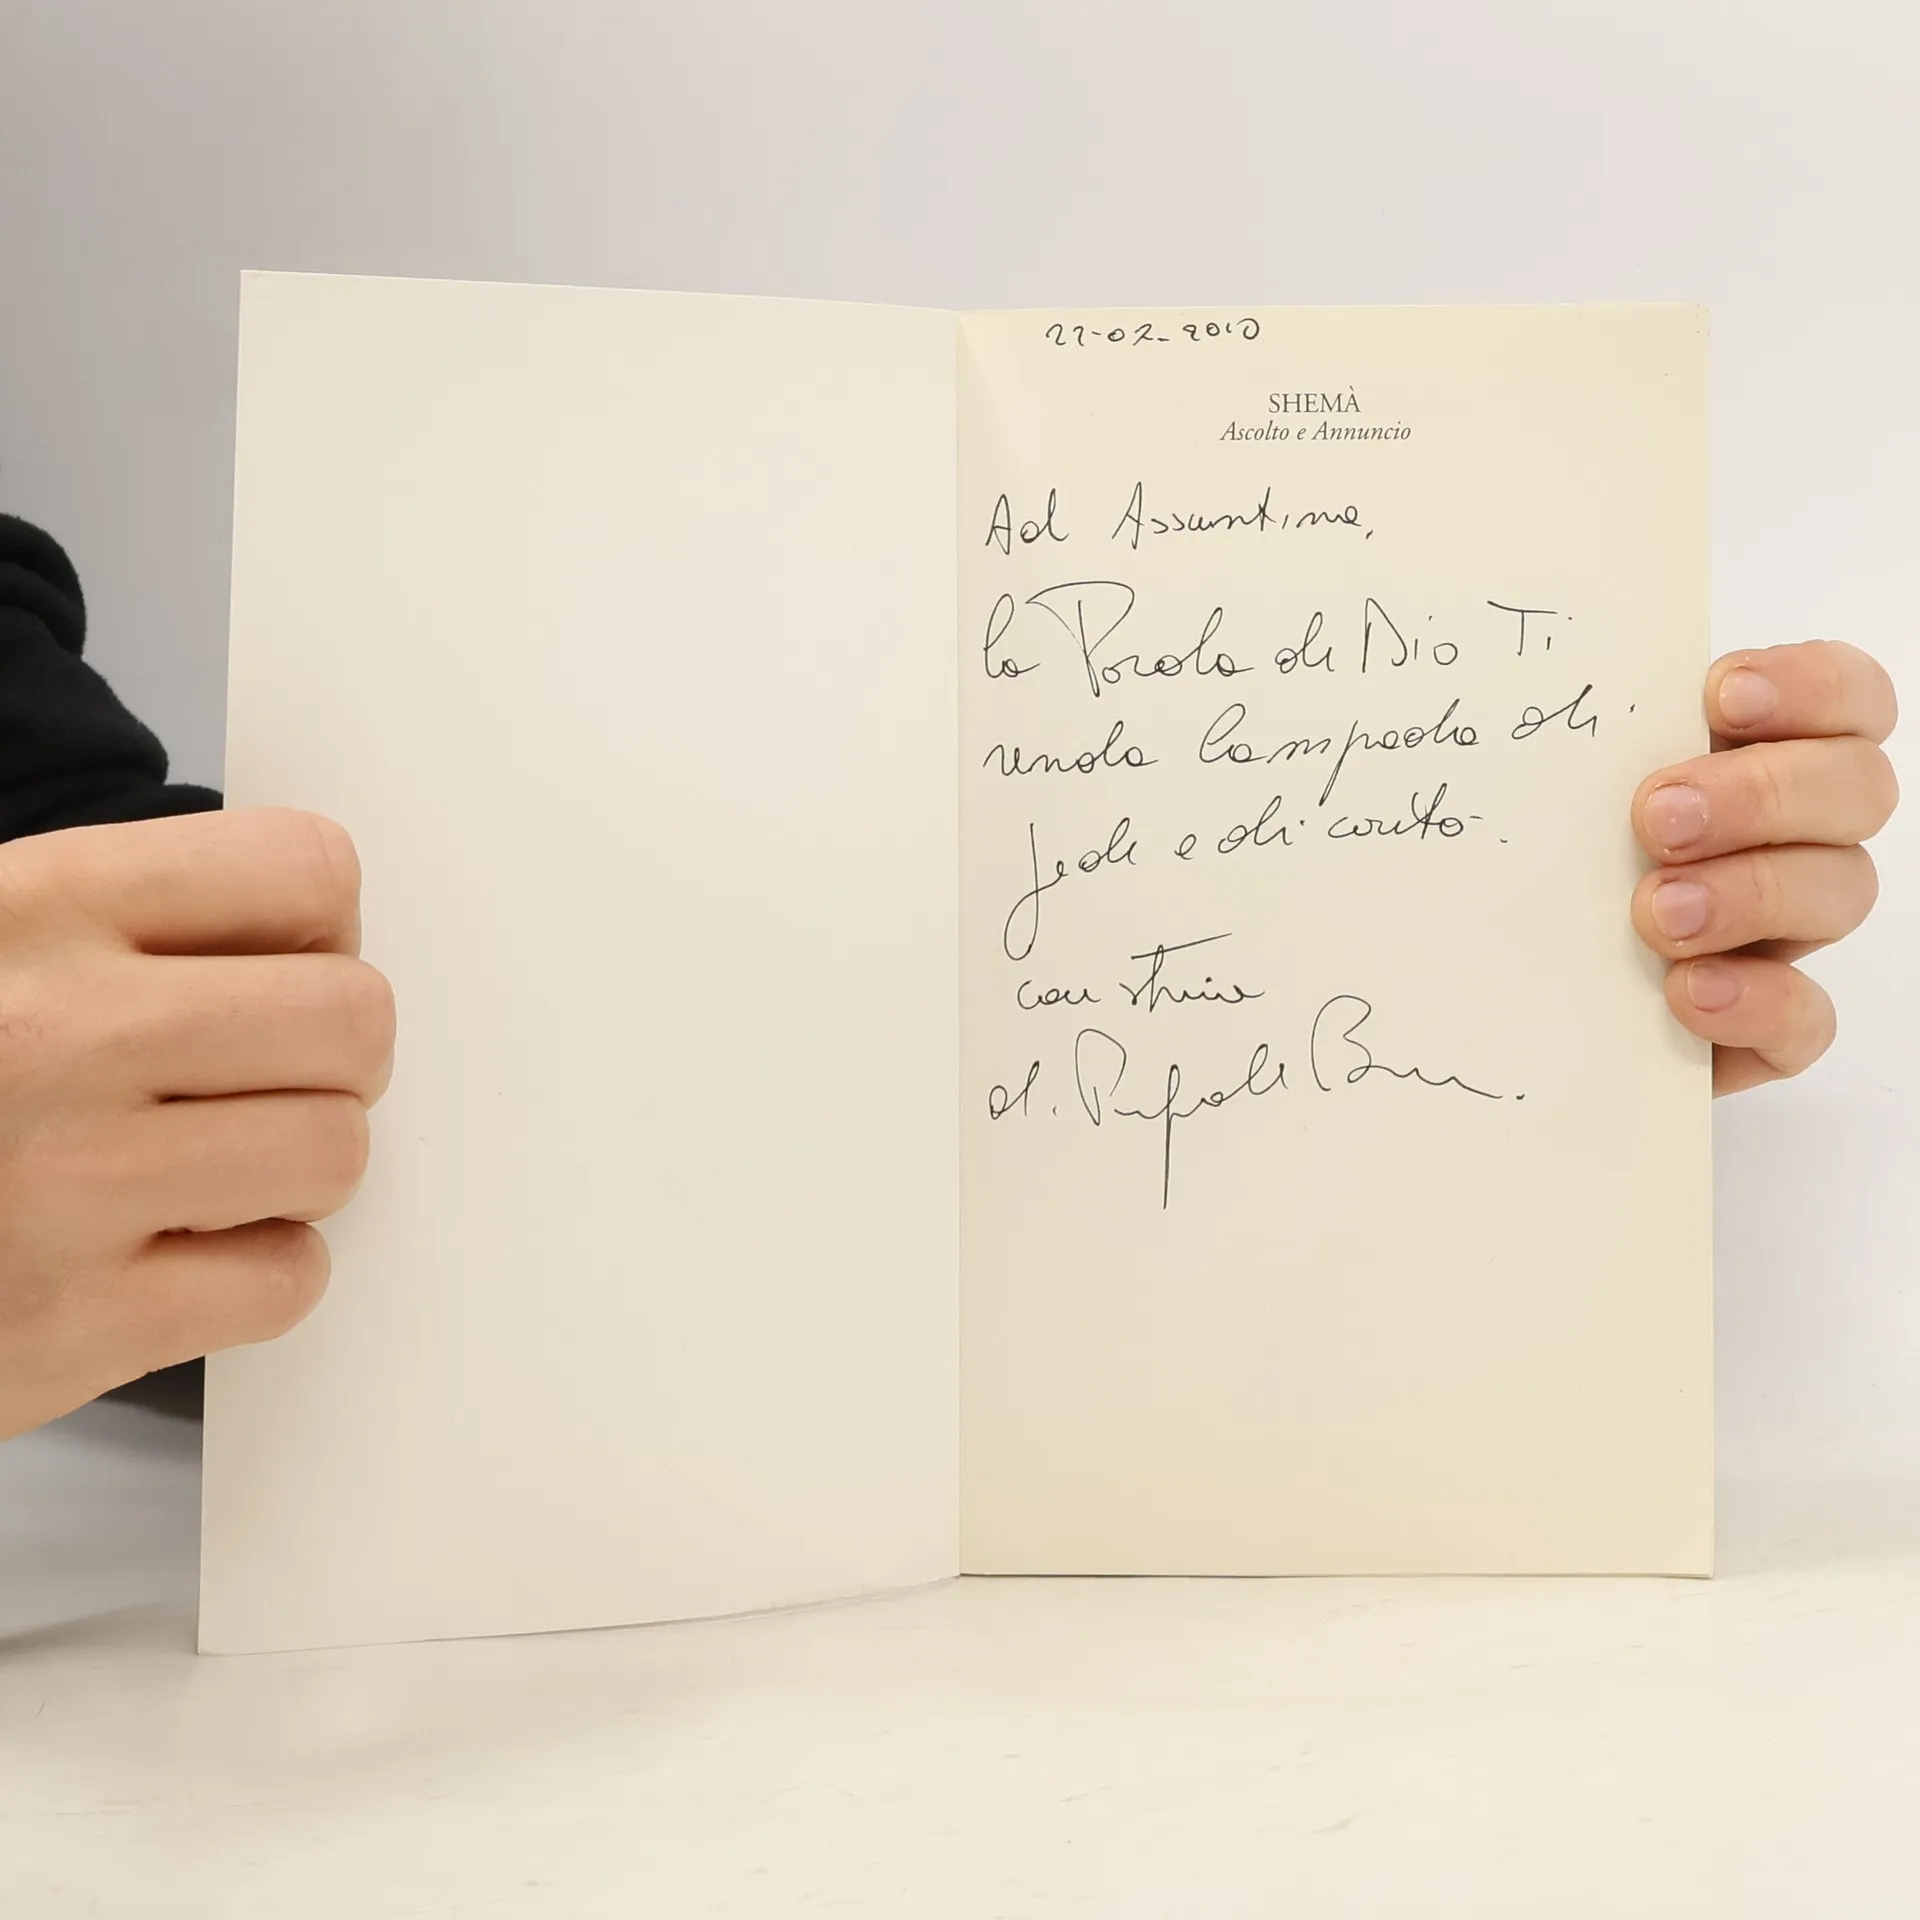 22-02-2010
SHEMÀ
Ascolto e Annuncio
Ad Assuntina,
la Parola di Dio Ti
renda lampada di
fede e di carità.
con stima
d. Pasquale